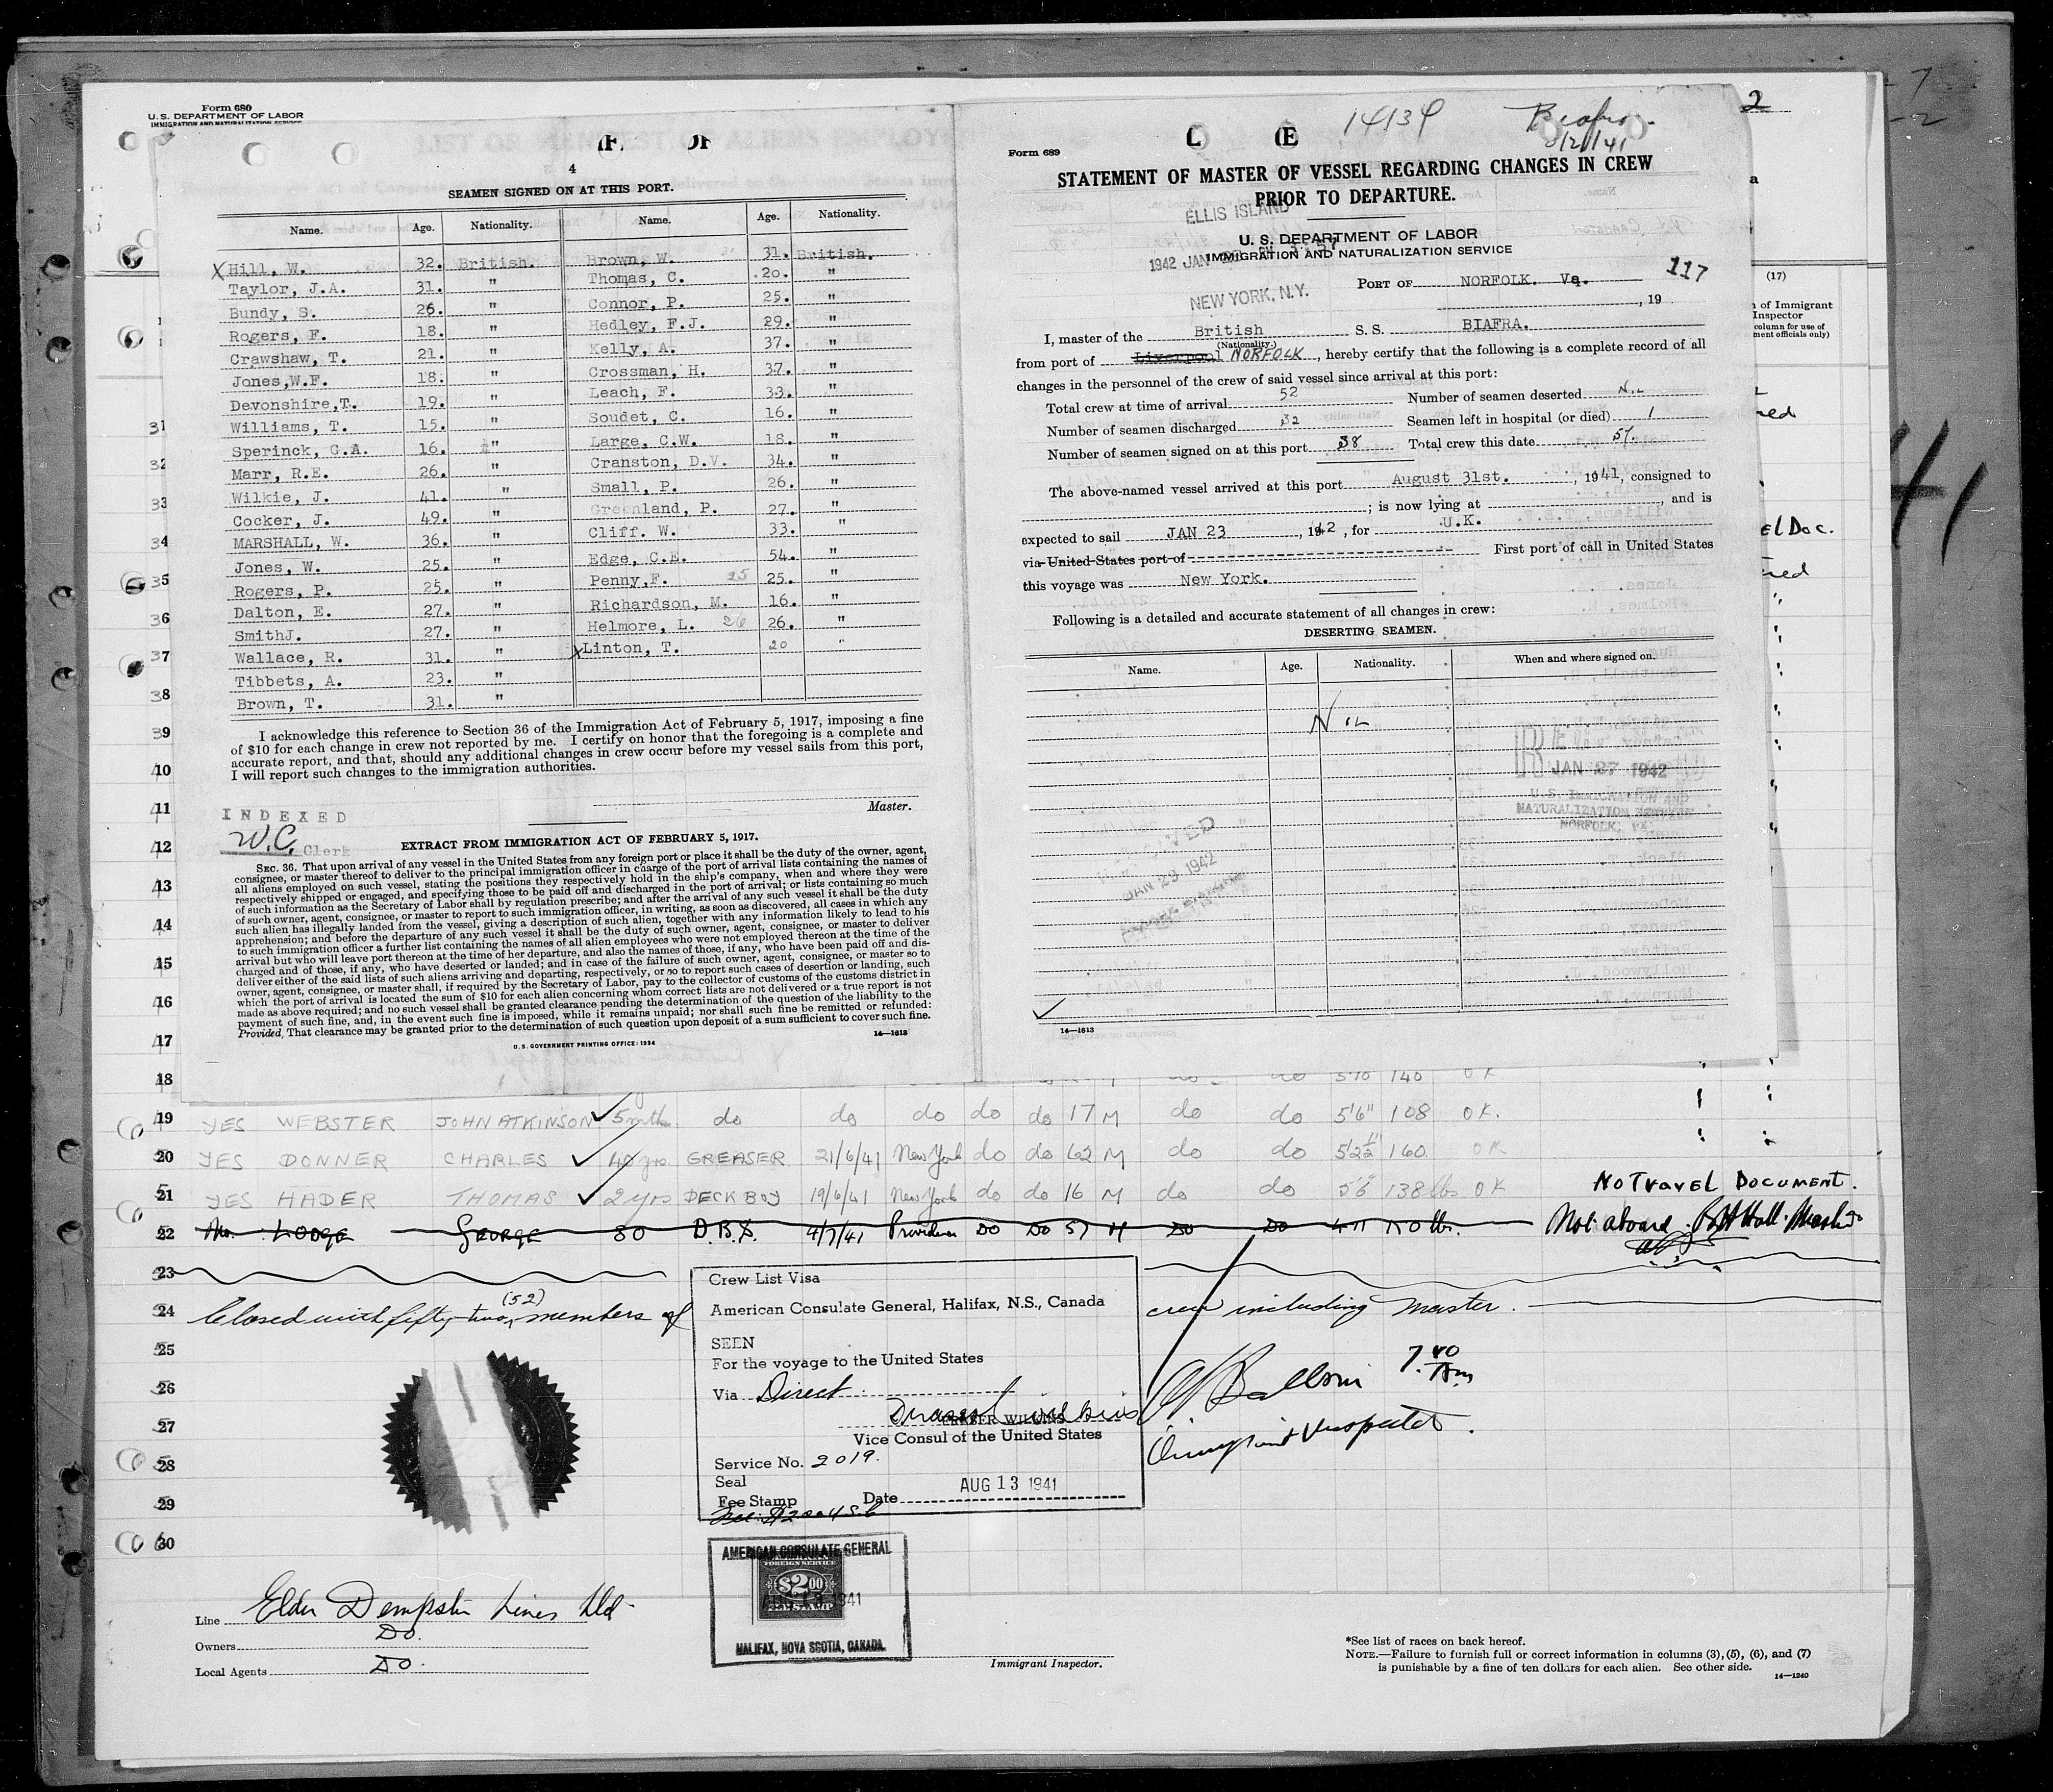 Form 680
U. S. DEPARTMENT OF LABOR
IMMIGRATION AND NATURALIZATION SERVICE
4
SEAMEN SIGNED ON AT THIS PORT.
Name. Age. Nationality. Name. Age. Nationality.
X Hill, W. 32. British. Brown, W. 31. British.
Taylor, J.A. 31. " Thomas, C. 20. "
Bundy, S. 26. " Connor, P. 25. "
Rogers, F. 18. " Hedley, F.J. 29. "
Crawshaw, T. 21. " Kelly, A. 37. "
Jones,W.F. 18. " Crossman, H. 37. "
Devonshire,T. 19. " Leach, F. 33. "
Williams, T. 15. " Soudet, C. 16. "
Sperinck, G.A. 16. " Large, C.W. 18. "
Marr, R.E. 26. " Cranston, D.V. 34. "
Wilkie, J. 41. " Small, P. 26. "
Cocker, J. 49. " Greenland, P. 27. "
MARSHALL, W. 36. " Cliff. W. 33. "
Jones, W. 25. " Edge, C.E. 54. "
Rogers, P. 25. " Penny,F. 25 25. "
Dalton, E. 27. " Richardson, M. 16. "
SmithJ. 27. " Helmore, L. 26 26. "
Wallace, R. 31. " X Linton, T. 20 "
Tibbets, A. 23. "
Brown, T. 31. "
I acknowledge this reference to Section 36 of the Immigration Act of February 5, 1917, imposing a fine
of $10 for each change in crew not reported by me. I certify on honor that the foregoing is a complete and
accurate report, and that, should any additional changes in crew occur before my vessel sails from this port,
I will report such changes to the immigration authorities.
Master.
INDEXED
W.C. Clerk
EXTRACT FROM IMMIGRATION ACT OF FEBRUARY 5, 1917.
SEC. 36. That upon arrival of any vessel in the United States from any foreign port or place it shall be the duty of the owner, agent,
consignee, or master thereof to deliver to the principal immigration officer in charge of the port of arrival lists containing the names of
all aliens employed on such vessel, stating the positions they respectively hold in the ship's company, when and where they were
respectively shipped or engaged, and specifying those to be paid off and discharged in the port of arrival; or lists containing so much
of such information as the Secretary of Labor shall by regulation prescribe; and after the arrival of any such vessel it shall be the duty
of such owner, agent, consignee, or master to report to such immigration officer, in writing, as soon as discovered, all cases in which any
such alien has illegally landed from the vessel, giving a description of such alien, together with any information likely to lead to his
apprehension; and before the departure of any such vessel it shall be the duty of such owner, agent, consignee, or master to deliver
to such immigration officer a further list containing the names of all alien employees who were not employed thereon at the time of the
arrival but who will leave port thereon at the time of her departure, and also the names of those, if any, who have been paid off and dis-
charged and of those, if any, who have deserted or landed; and in case of the failure of such owner, agent, consignee, or master so to
deliver either of the said lists of such aliens arriving and departing, respectively, or so to report such cases of desertion or landing, such
owner, agent, consignee, or master shall, if required by the Secretary of Labor, pay to the collector of customs of the customs district in
which the port of arrival is located the sum of $10 for each alien concerning whom correct lists are not delivered or a true report is not
made as above required; and no such vessel shall be granted clearance pending the determination of the question of the liability to the
payment of such fine, and, in the event such fine is imposed, while it remains unpaid; nor shall such fine be remitted or refunded:
Provided, That clearance may be granted prior to the determination of such question upon deposit of a sum sufficient to cover such fine.
14—1613
U. S. GOVERNMENT PRINTING OFFICE: 1934
14134
8/21/41
2
Form 689
STATEMENT OF MASTER OF VESSEL REGARDING CHANGES IN CREW
PRIOR TO DEPARTURE.
ELLIS ISLAND
U. S. DEPARTMENT OF LABOR
IMMIGRATION AND NATURALIZATION SERVICE
1942 JAN
NEW YORK, N.Y.
117
PORT OF NORFOLK. Va.
, 19
I, master of the British S. S. BIAFRA.
(Nationality.)
from port of Liverpool NORFOLK, hereby certify that the following is a complete record of all
changes in the personnel of the crew of said vessel since arrival at this port:
Total crew at time of arrival 52 Number of seamen deserted NIL
Number of seamen discharged 32 Seamen left in hospital (or died) 1
Number of seamen signed on at this port 38 Total crew this date 57.
The above-named vessel arrived at this port August 31st. , 1941, consigned to
; is now lying at , and is
expected to sail JAN 23 , 1942, for U.K.
via United States port of First port of call in United States
this voyage was New York.
Following is a detailed and accurate statement of all changes in crew:
DESERTING SEAMEN.
Name. Age. Nationality. When and where signed on.
NIL
JAN 27 1942
U.S. IMMIGRATION AND
NATURALIZATION SERVICE
NORFOLK, VA.
JAN 29 1942
14—1613
(17)
n of Immigrant
Inspector
column for use of
ment officials only)
41
18 5'10 140 OK
19 YES WEBSTER JOHN ATKINSON ✓ 5 mths do do do do do 17 M do do 5'6" 108 OK.
20 YES DONNER CHARLES ✓ 40 yrs GREASER 21/6/41 New York do do 62 M do do 5'2½" 160 OK
21 YES HADER THOMAS ✓ 2 yrs DECK BOY 19/6/41 New York do do 16 M do do 5'6 138 lbs OK NO TRAVEL DOCUMENT.
22 No. LODGE GEORGE 30 D.B.S. 4/7/41 Providence DO DO 57 M DO DO Not aboard.
23
24 Closed with fifty-two (52) members of crew including master.
25
26
27
28
29
30
Crew List Visa
American Consulate General, Halifax, N.S., Canada
SEEN
For the voyage to the United States
Via Direct
FRASER WILKINS
Vice Consul of the United States
Service No. 2019.
Seal
Fee Stamp Date AUG 13 1941
7.40 Am
Immigrant Inspector.
AMERICAN CONSULATE GENERAL
FOREIGN SERVICE
$2.00
FEE STAMP
HALIFAX, NOVA SCOTIA, CANADA.
Line Elder Dempster Lines Ltd
Owners Do.
Local Agents Do.
Immigrant Inspector.
*See list of races on back hereof.
NOTE.—Failure to furnish full or correct information in columns (3), (5), (6), and (7)
is punishable by a fine of ten dollars for each alien. See other side.
14—1240